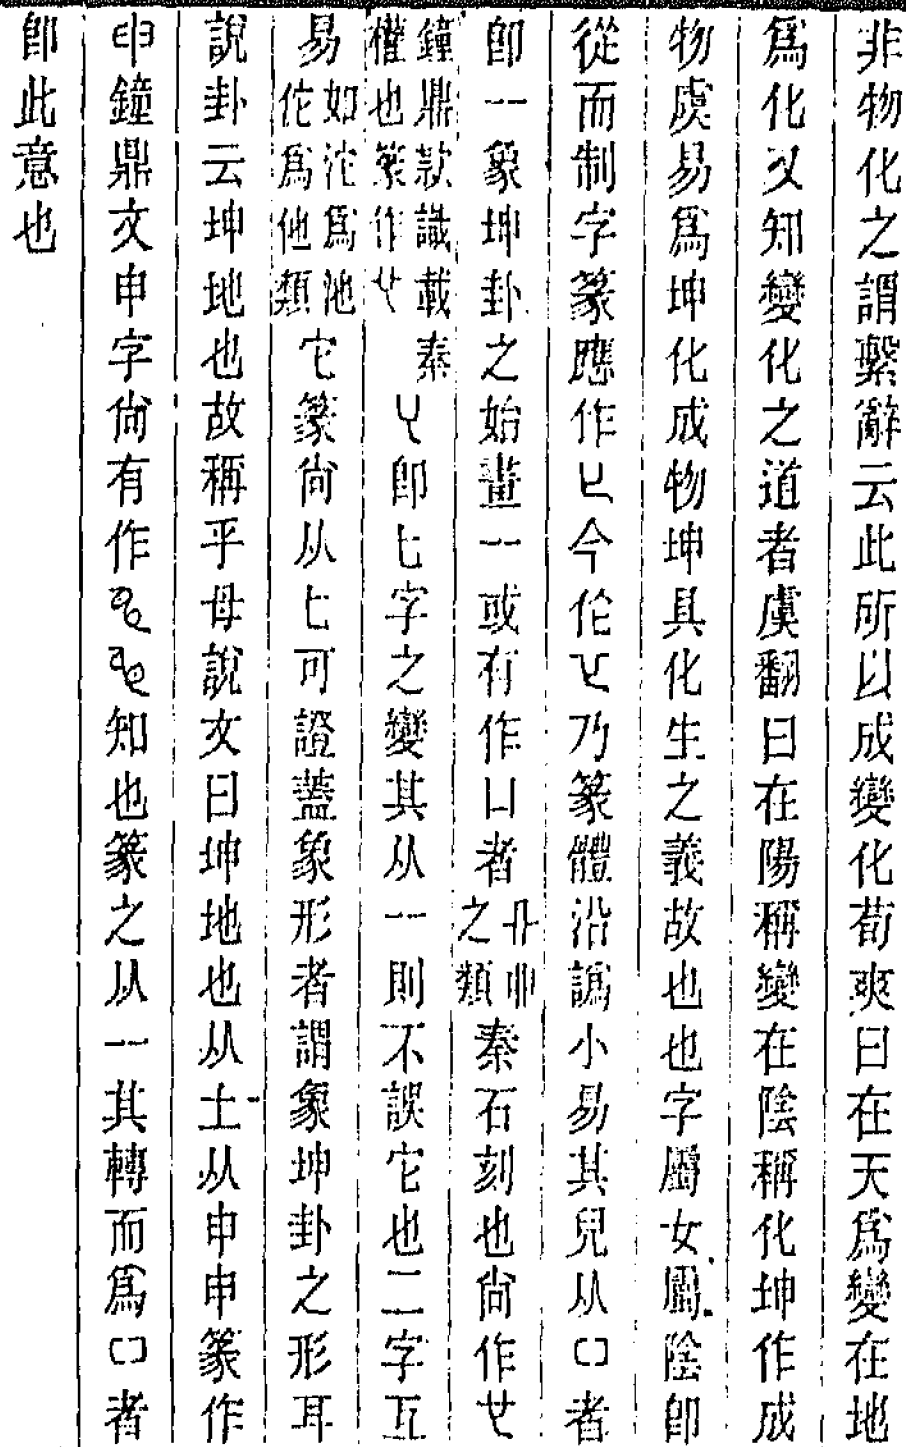 非物化之謂繫辭云此所以成變化荀爽曰在天爲變在地
爲化又知變化之道者虞翻曰在陽稱變在陰稱化坤作成
物虞易爲坤化成物坤具化生之義故也也字屬女屬陰卽
從而制字篆應作今作乃篆體沿譌小易其皃从者
卽一象坤卦之始畫一或有作凵者之類秦石刻也尙作
鐘鼎款識載秦權也篆作卽七字之變其从一則不誤它也二字互
易如沱爲池佗爲他類它篆尙从七可證蓋象形者謂象坤卦之形耳
說卦云坤地也故稱乎母說文曰坤地也从土从申申篆作
申鐘鼎文申字尙有作知也篆之从一其轉而爲者
卽此意也